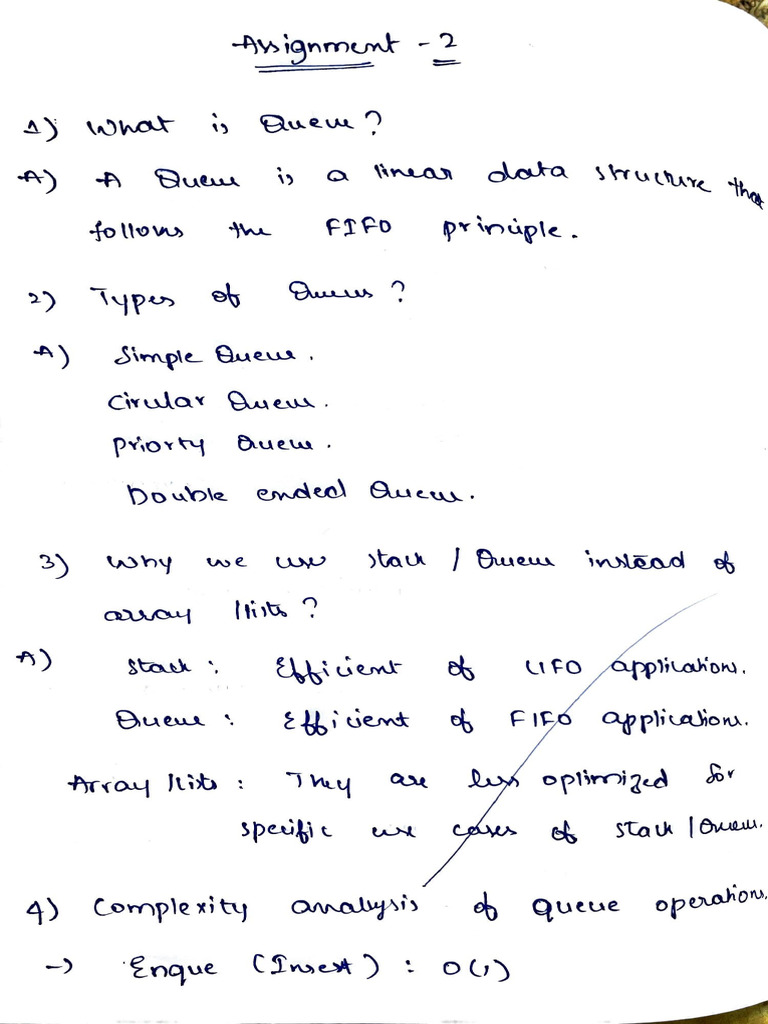 Assignment - 2
1) What is Queue?
A) A Queue is a linear data structure that
follows the FIFO principle.
2) Types of Queues?
A) Simple Queue.
Circular Queue.
Priorty Queue.
Double ended Queue.
3) Why we use stack / Queue instead of
array / lists?
A) Stack : Efficient of LIFO applications.
Queue : Efficient of FIFO applications.
Array / lists : They are less optimized for
specific use cases of stack / Queue.
4) Complexity analysis of queue operations.
→ Enque (Insert) : O(1)